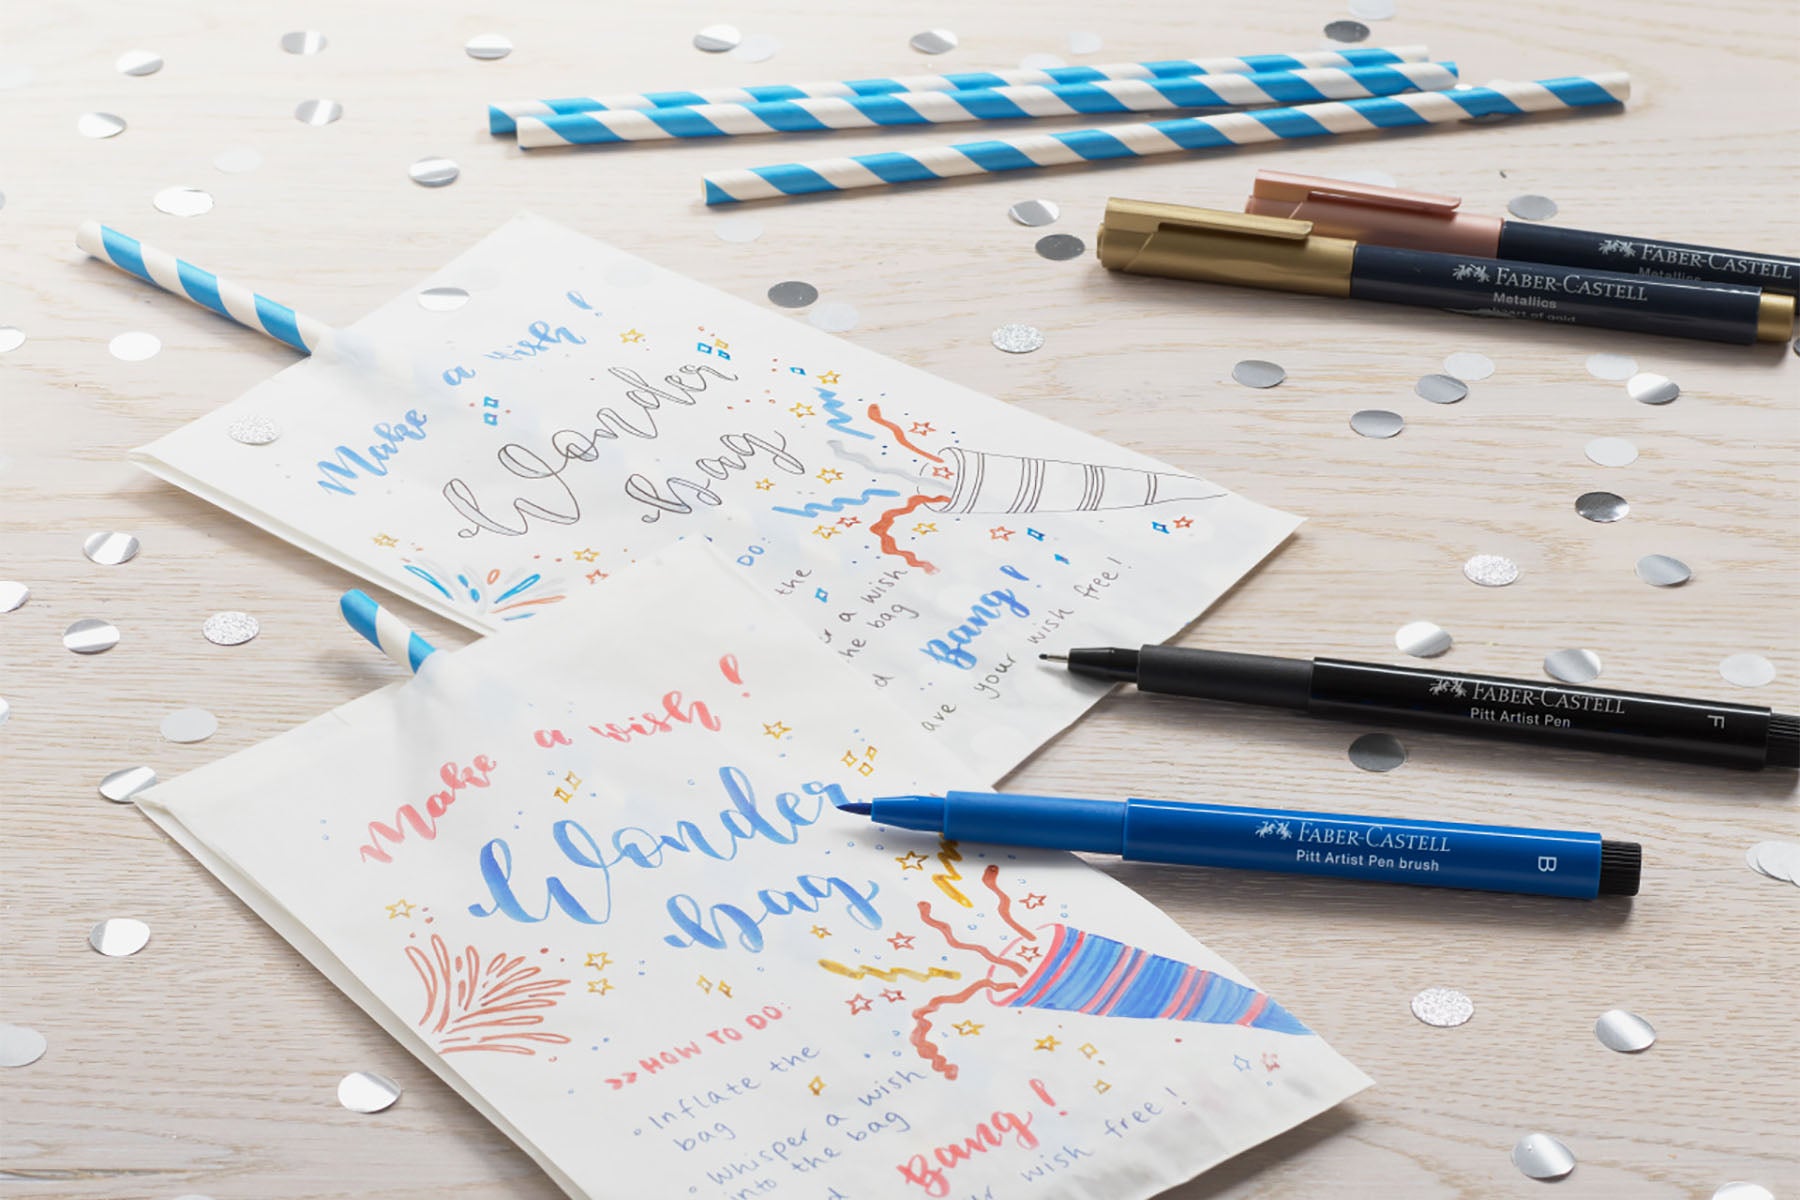 Make a wish!
Wonder
Bag
DO:
the
a wish
the bag
Bang!
are your wish free!
Make a wish!
Wonder
Bag
>> HOW TO DO:
Inflate the
bag
Whisper a wish
into the bag
Bang!
wish free!
FABER-CASTELL
Metallics
FABER-CASTELL
Metallics
heart of gold
FABER-CASTELL
Pitt Artist Pen
F
FABER-CASTELL
Pitt Artist Pen brush
B